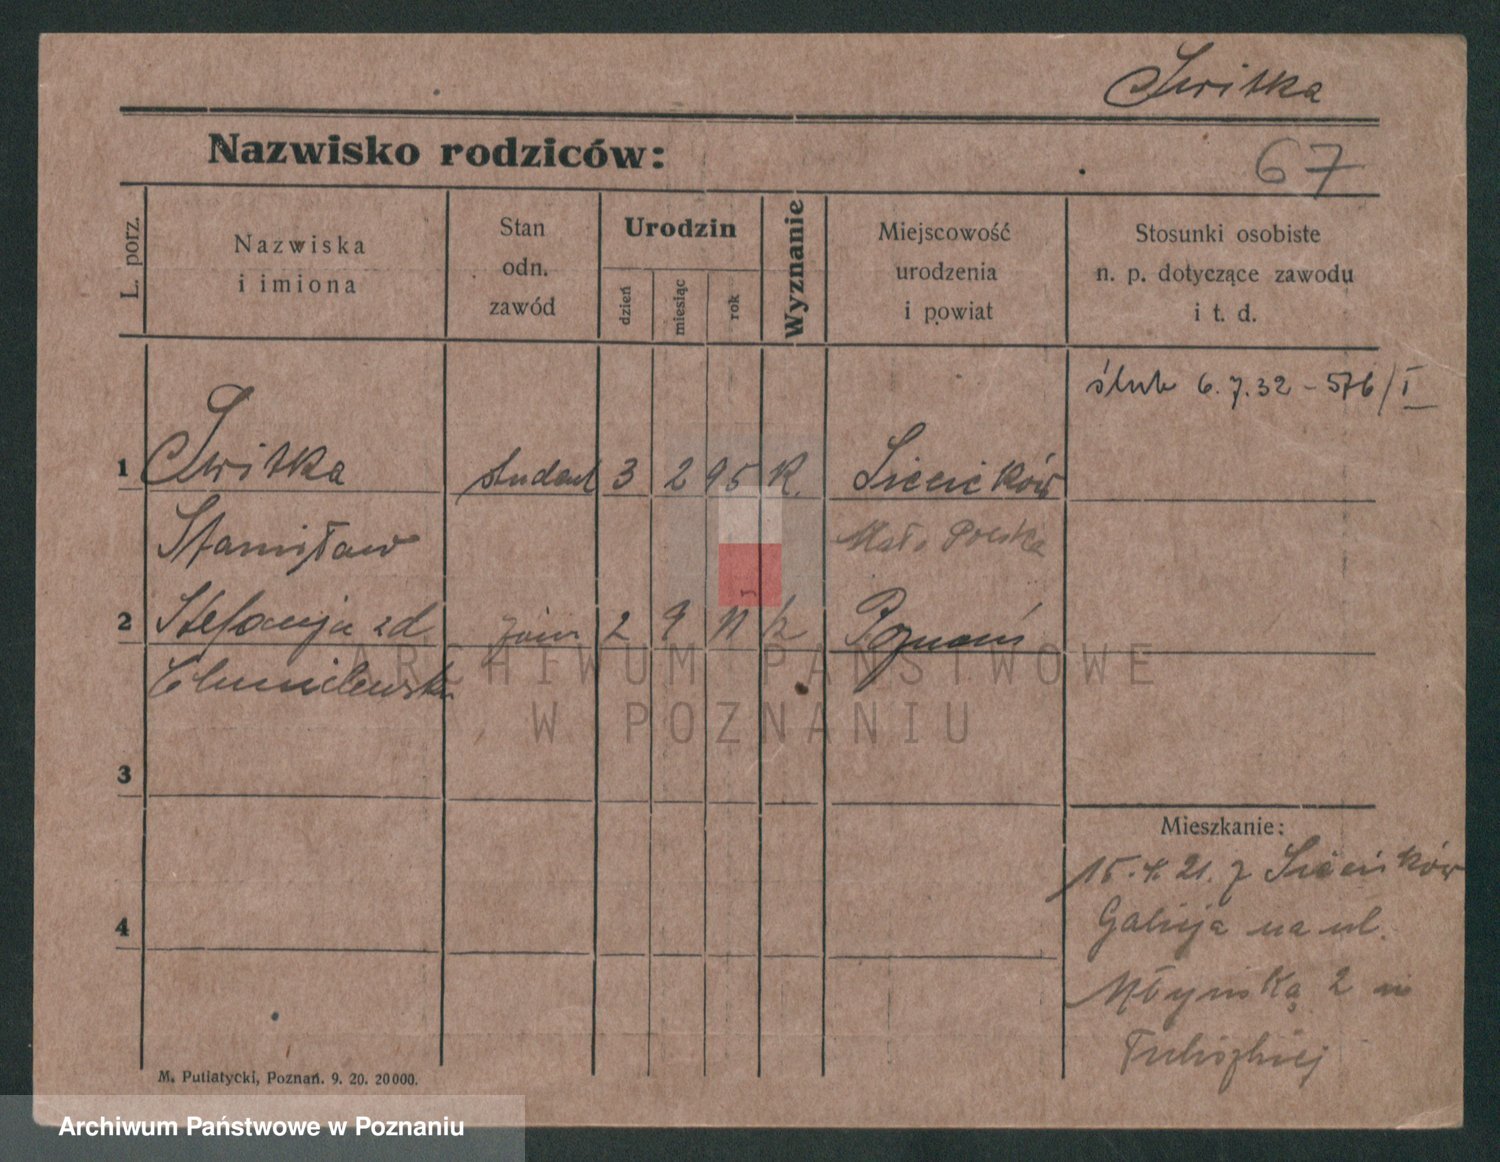 Switka
Nazwisko rodziców:
67
L. porz.
Nazwiska
i imiona
Stan
odn.
zawód
Urodzin
dzień
miesiąc
rok
Wyznanie
Miejscowość
urodzenia
i powiat
Stosunki osobiste
n. p. dotyczące zawodu
i t. d.
ślub 6.7.32 - 576/I
1 Switka student 3 2 95 K. Siecieków
Stanisław Mało Polska
2 Stefanja zd 2 9 Poznań
3
4
Mieszkanie:
15.4.21. z
Galicja na ul.
Młyńską 2
M. Putiatycki, Poznań. 9. 20. 20000.
ARCHIWUM PAŃSTWOWE
W POZNANIU
Archiwum Państwowe w Poznaniu